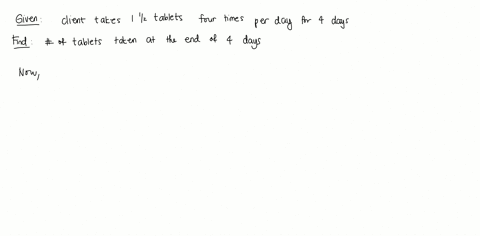 Given: client takes 1 1/2 tablets four times per day for 4 days
Find: # of tablets taken at the end of 4 days
Now,